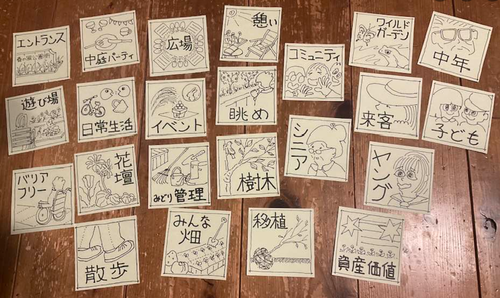 エントランス
中庭パーティ
広場
憩い
コミュニティ
ワイルド
ガーデン
中年
遊び場
日常生活
イベント
眺め
シニア
来客
子ども
バリア
フリー
花壇
みどり管理
樹木
ヤング
散歩
みんな
畑
移植
資産価値